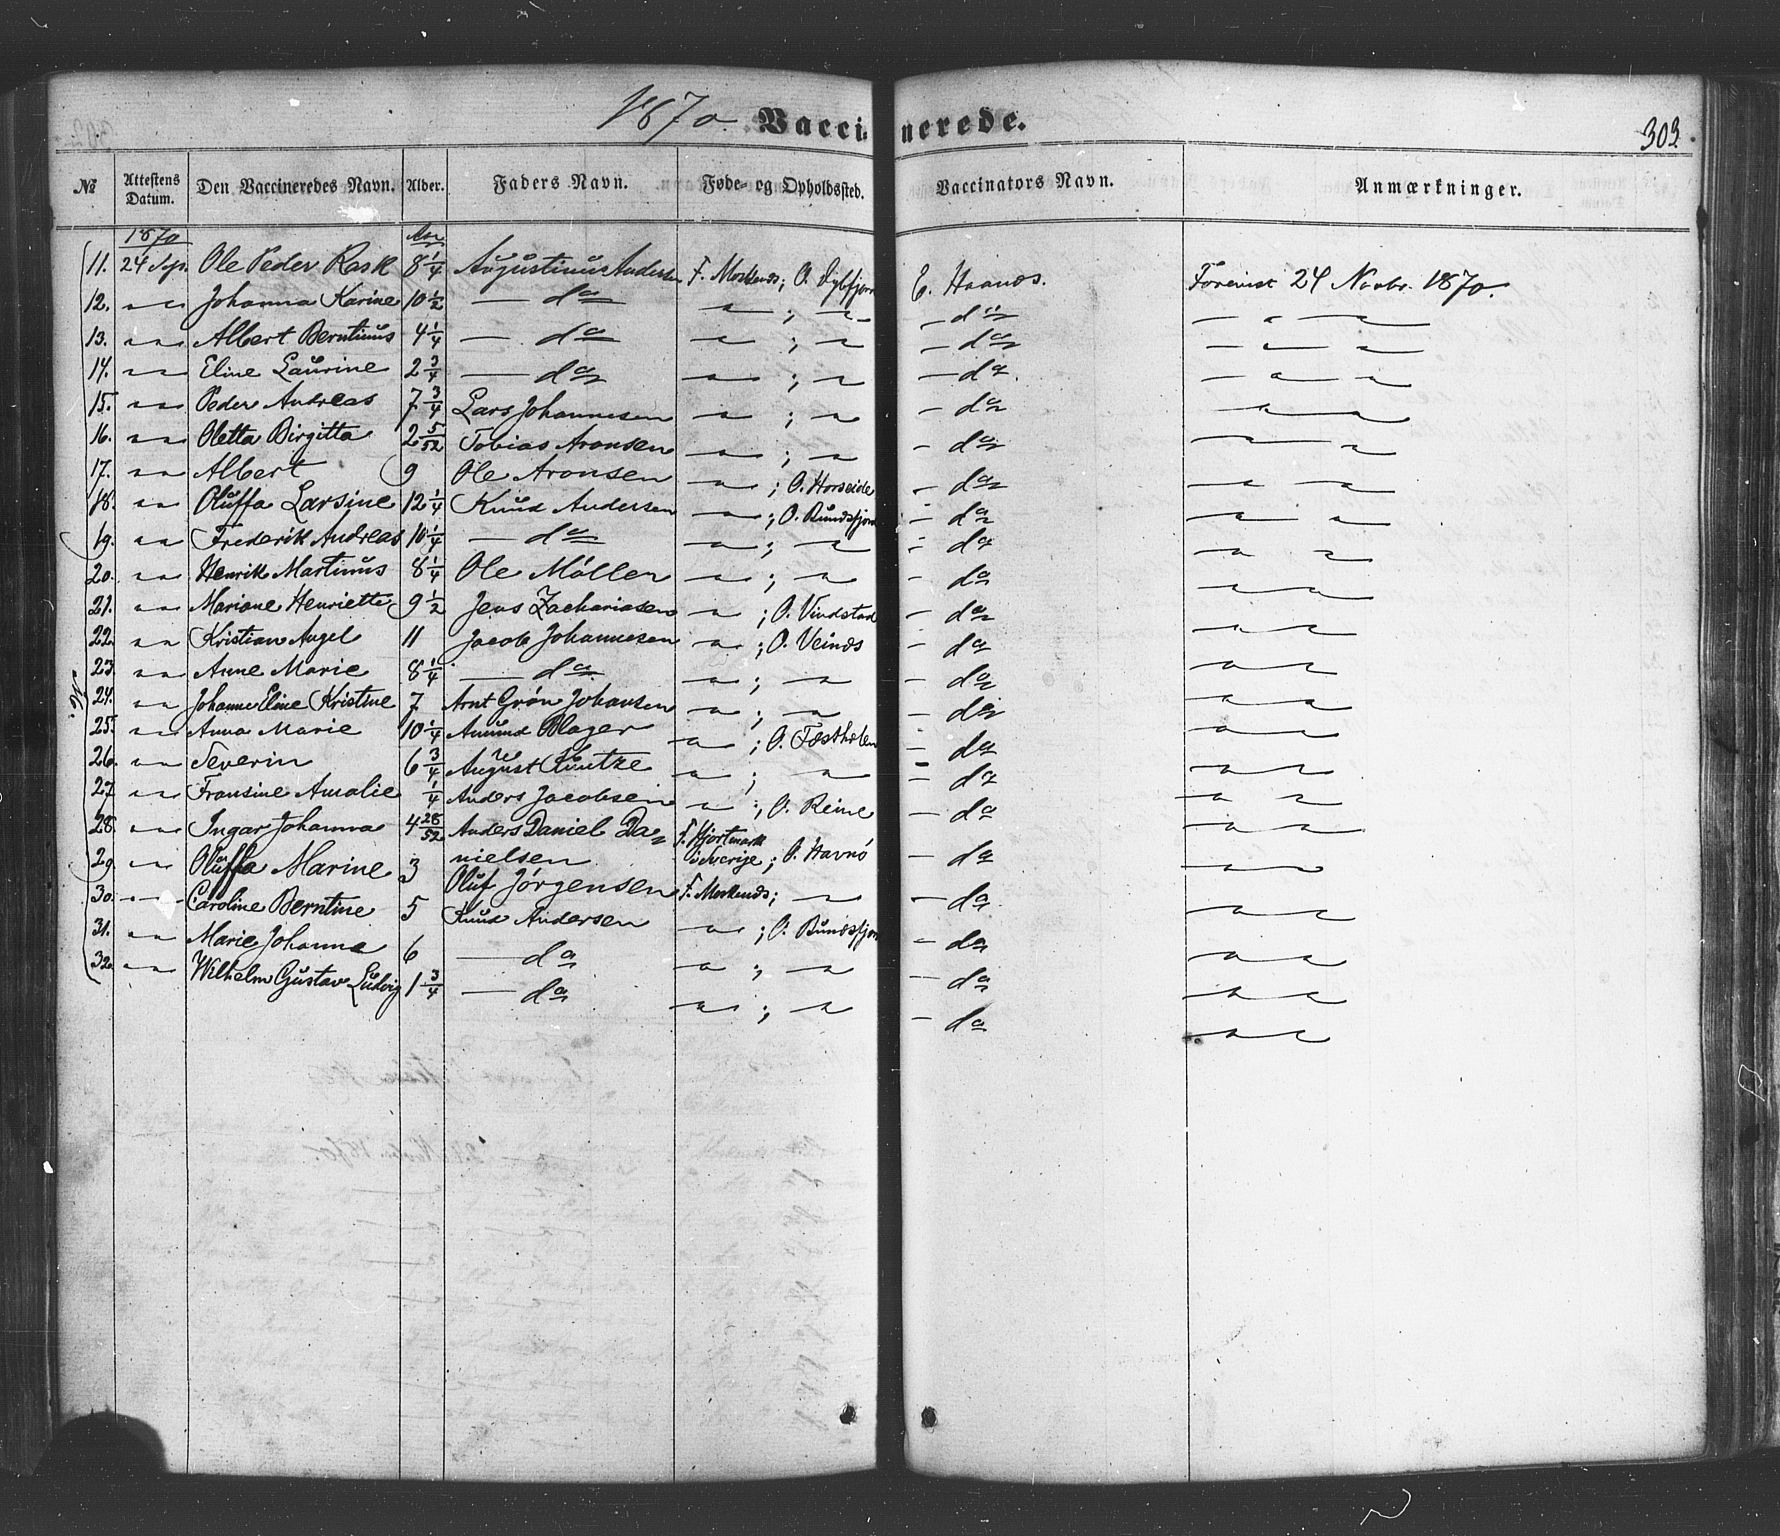 1870. Vaccinerede. 303.
№ Attestens Datum. Den Vaccineredes Navn. Alder. Faders Navn. Føde- og Opholdssted. Vaccinators Navn. Anmærkninger.
1870
11. 24 Sep. Ole Peder Rask 8 1/4 Augustinus Andersen F. Moskenæs; O. E. Haanæs. 24 Novbr. 1870.
12. " " Johanna Karine 10 1/2 — do " ; " — do — " "
13. " " Albert Berntinus 4 1/4 — do " ; " — do — " "
14. " " Eline Laurine 2 3/4 — do " ; " — do. — " "
15. " " Peder Andreas 7 3/4 Lars Johannesen " ; " — do " "
16. " " Oletta Birgitta 2 5/52 Tobias Aronsen " ; " — do " "
17. " " Albert 9 Ole Aronsen " ; O. Horseide — do " "
18. " " Oluffa Larsine 12 1/4 Knud Andersen " ; O. Bundsfjord — do " "
19. " " Frederik Andreas 10 1/4 — do " ; " — do " "
20. " " Henrik Martinus 8 1/4 Ole Møller " ; " — do " "
21. " " Mariane Henriette 9 1/2 Jens Zachariasen " ; O. Vindstad — do " "
22. " " Kristian Angel 11 Jacob Johannesen " ; O. Veinæs — do " "
23. " " Anne Marie 8 1/4 — do. " ; " — do " "
24. " " Johanne Eline Kristine 7 Arnt Grøn Johansen " ; " — do " "
25. " " Anna Marie 10 1/4 Amund Blager " ; O. Tæsthelen — do " "
26. " " Severin 6 3/4 August Küntze " ; " — do " "
27. " " Fransine Amalie 1/4 Anders Jacobsen " ; O. Reine — do " "
28. " " Ingar Johanna 4 28/52 Anders Daniel Da- F. Hjortmark
nielsen i Sverije; O. Havnö — do " "
29. " Oluffa Marine 3 Oluf Jørgensen F. Moskenæs; " — do. " "
30. " " Caroline Berntine 5 Knud Andersen " ; O. Bundsfjord — do " "
31. " " Marie Johanna 6 — do " ; " — do " "
32. " " Wilhelm Gustav Ludvig 1 3/4 — do " ; " — do " "